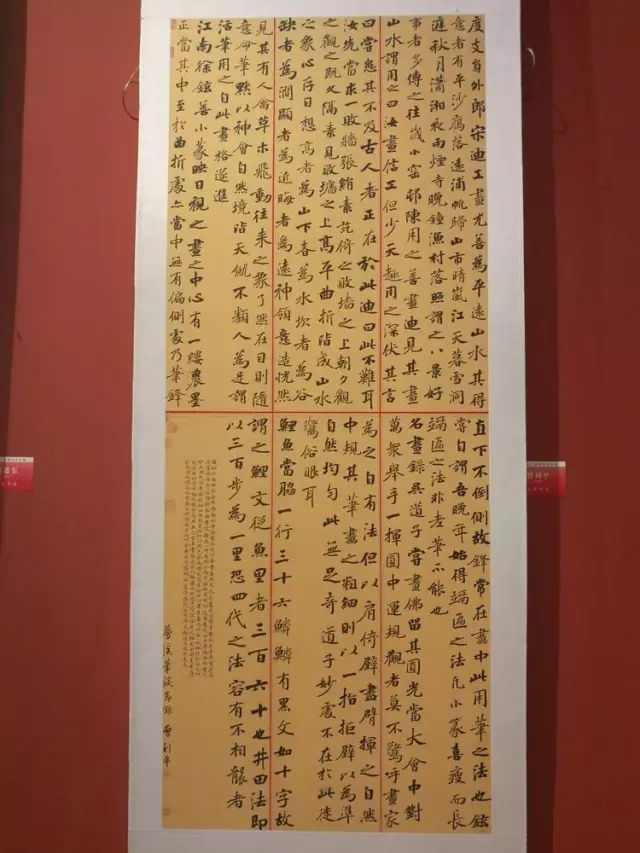 度支員外郎宋迪工畫尤善為平遠山水其得
意者有平沙鴈落遠浦帆歸山市晴嵐江天暮雪洞
庭秋月瀟湘夜雨煙寺晚鐘漁村落照謂之八景好
事者多傳之往歲小窑邨陳用之善畫迪見其畫
山水謂用之曰汝畫信工但少天趣用之深伏其言
曰嘗患其不及古人者正在於此迪曰此不難耳
汝先當求一敗牆張絹素訖倚之敗墻之上朝夕觀
之觀之既久隔素見敗墻之上高平曲折皆成山水
之象心存目想高者為山下者為水坎者為谷
缺者為澗顯者為近晦者為遠神領意造恍然
見其有人禽草木飛動往來之象了然在目則隨
意命筆默以神會自然境皆天就不類人為是謂
活筆用之自此畫格遂進
江南徐鉉善小篆映日視之畫之中心有一縷濃墨
正當其中至於曲折處亦當中無有偏側處乃筆鋒
直下不倒側故鋒常在畫中此用筆之法也鉉
嘗自謂吾晚年始得竵匾之法凡小篆喜瘦而長
竵匾之法非老筆不能也
名畫錄吳道子嘗畫佛留其圓光當大會中對
萬衆舉手一揮圓中運規觀者莫不驚呼畫家
為之自有法但以肩倚壁盡臂揮之自然
中規其筆畫之粗細則以一指拒壁以為準
自然均勻此無足奇道子妙處不在於此徒
驚俗眼耳
鯉魚當脇一行三十六鱗鱗有黑文如十字故
謂之鯉文從魚里者三百六十也井田法即
以三百步為一里恐四代之法容有不相襲者
夢溪筆談節錄 曾利平
曾利平